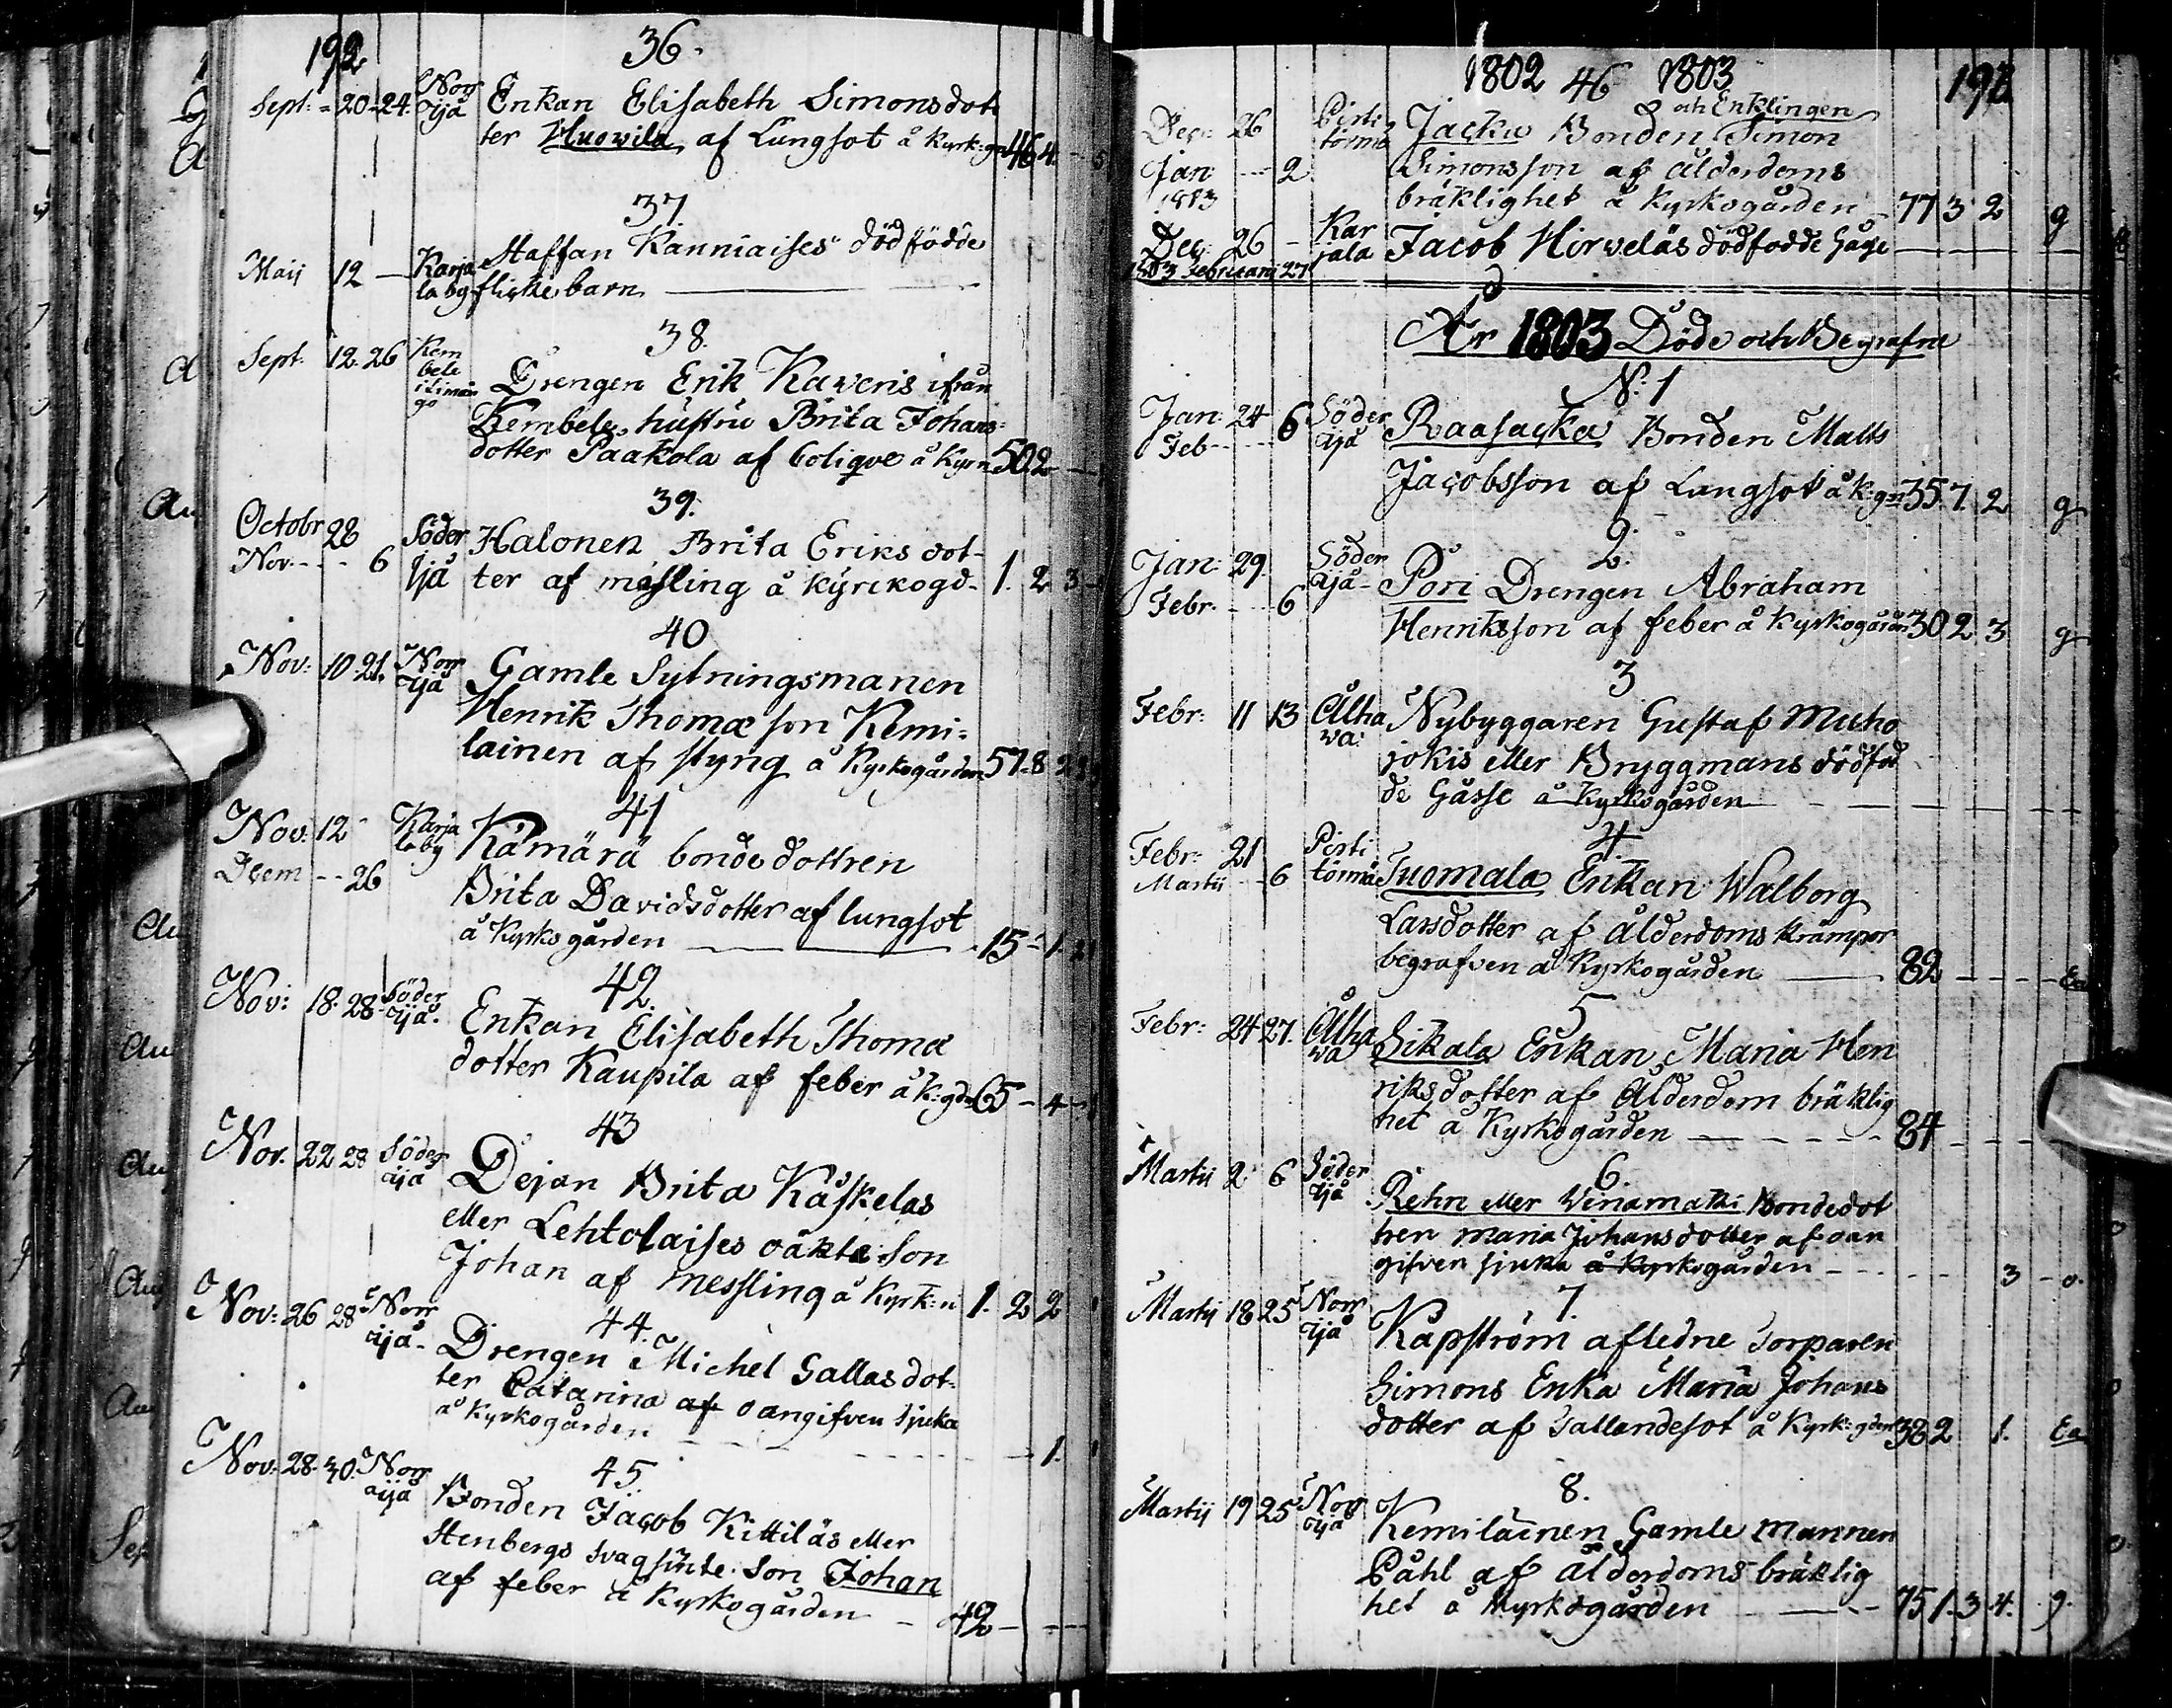 192
36.
Sept: 20-24. Norr åjå Enkan Elisabeth Simonsdot
ter Huovila af Lungsot å Kyrk:gn 46 4 -
37
Maij 12 - Karja la by Staffan Kanniaises död födde
flicke barn
38.
Sept: 12. 26 Kem bele Drengen Erik Kaveris ifrån
Kembele hustru Brita Johans-
dotter Paakola af colique å Kyrn 50. 2 -
39.
Octobr 28 Söder åjå Halonen Brita Eriks dot-
Nov. - - 6 ter af mässling å kyrckogd. 1. 2 3 -
40
Nov: 10. 21. Norr åjå Gamle Sytningsmanen
Henrik Thomæ son Kemi-
lainen af styng å Kyrkogården 57. 8
41
Nov: 12 Karja la by Kämärä bonde dottren
Decem - - 26 Brita Davidsdotter af lungsot
å Kyrko gården 15 - 1.
42.
Nov: 18. 28 Söder åjå. Enkan Elisabeth Thomæ
dotter Kaupila af feber å K:gdn 65 - 4 -
43
Nov. 22 28 Söder åjå Dejan Brita Kaskelas
eller Lehtolaises oäkta Son
Johan af messling å Kyrk:n 1. 2 2
44.
Nov: 26 28 Norr åjå. Drengen Michel Gallas dot-
ter Catarina af oangifven sjuka
å Kyrkogården 1.
45.
Nov: 28. 30. Norr åijå Bonden Jacob Kittiläs eller
Stenbergs svagsinte Son Johan
af feber å Kyrkogården - 42 -
1802 46 1803 192
och Enklingen
Dec: 26 Pirti törmä Jacku Bonden Simon
Jan: - - 2 Simonsson af ålderdoms
1803 bräklighet å Kyrkogården 77 3 2 g
Dec: 26 - Kar jala Jacob Hirveläs dödfödde Gåsse
1803 Februarii 27
År 1803 Döde och Begrafne
N: 1
Jan: 24 Söder åjå Raasacka Bonden Matts
Feb - - - 6 Jacobsson af Lungsot å K:gn 35. 7. 2 g
2.
Jan: 29. Söder åjå - Pori Drengen Abraham
Febr. - - - 6 Henriksson af feber å Kyrkogården 30 2. 3 g
3
Febr: 11 13 Utha va: Nybyggaren Gustaf Muho
jokis eller Bryggmans dödföd
de Gåsse å Kyrkogården
4
Febr: 21 Pirti törmä Tuomala Enkan Walborg
Martii - - 6 Larsdotter af ålderdoms krämpor
begrafven å Kyrkogården 82 - - - En
5
Febr: 24 27. Utha va Sikala Enkan Maria Hen
riks dotter af Ålderdom bräklig
het å Kyrkogården 84
6.
Martii 2 6 Söder åjå Rehn eller Vinamaki Bondedot
tren Maria Johansdotter af oan
gifven sjuka å Kyrkogården 3 - o.
7.
Martij 18 25 Norr åjå Kapström afledne Torparen
Simons Enka Maria Johans
dotter af Fallandesot å Kyrk:gden 38 2 1. En
8.
Martij 19 25 Norr åjå Kemiläinen Gamle Mannen
Påhl af ålderdoms bräklig
het å Kyrkogården 75 1. 3. 4. g.